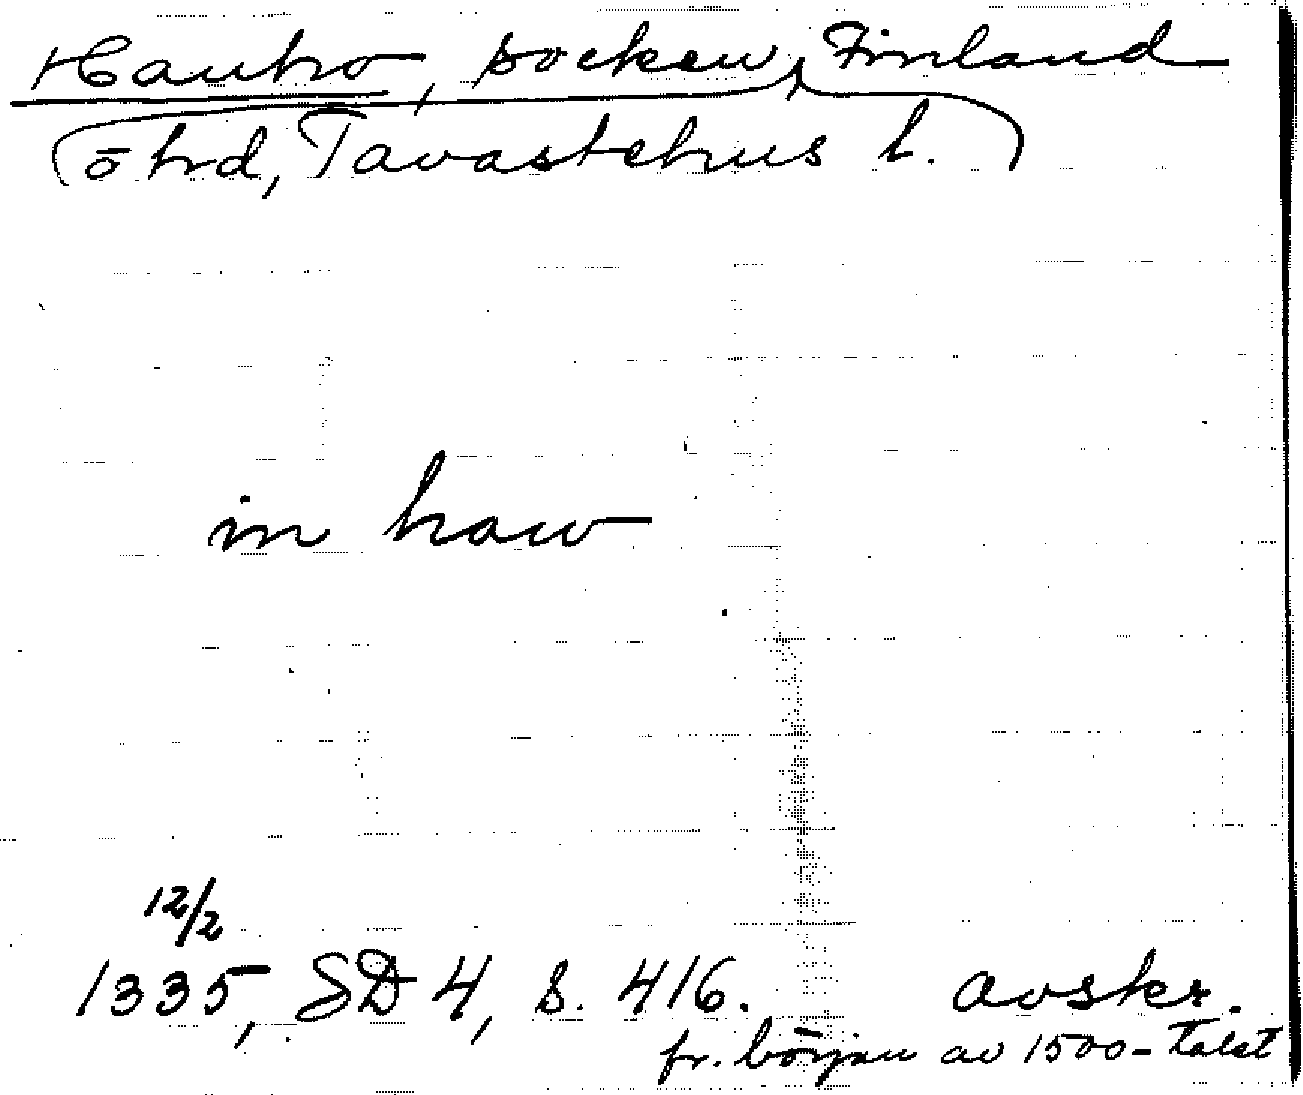 Hauho, socken, Finland
(ō hrd, Tavastehus l.)
in haw
12/2
1335, SD 4, s. 416. avskr.
fr. början av 1500-talet